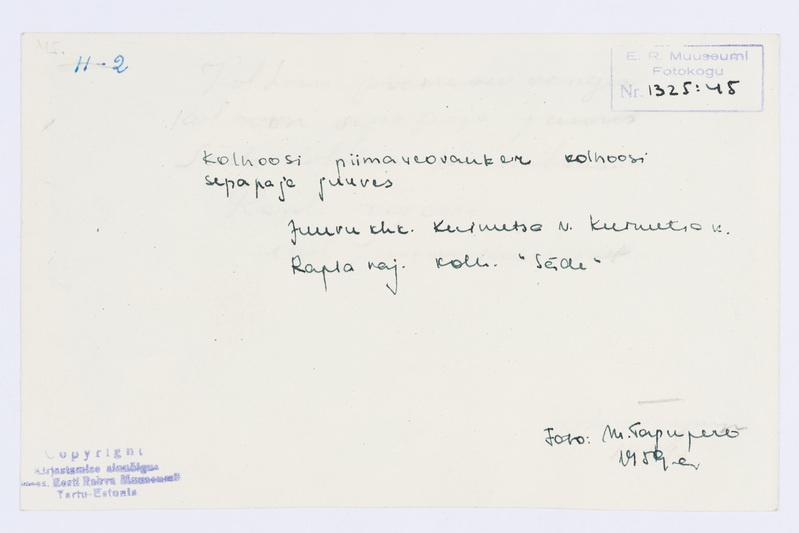 H-2
E. R. Muuseumi
Fotokogu
Nr. 1325:45
Kolhoosi piimaveovanker kolhoosi
sepapaja juures
Juuru khk. Kuimetsa v. Kuimetsa k.
Rapla raj. kolh. "Säde"
Foto: M. Tagupere
1959. a
Copyright
Kirjastamise ainuõigus
Eesti Rahva Muuseumil
Tartu-Estonia